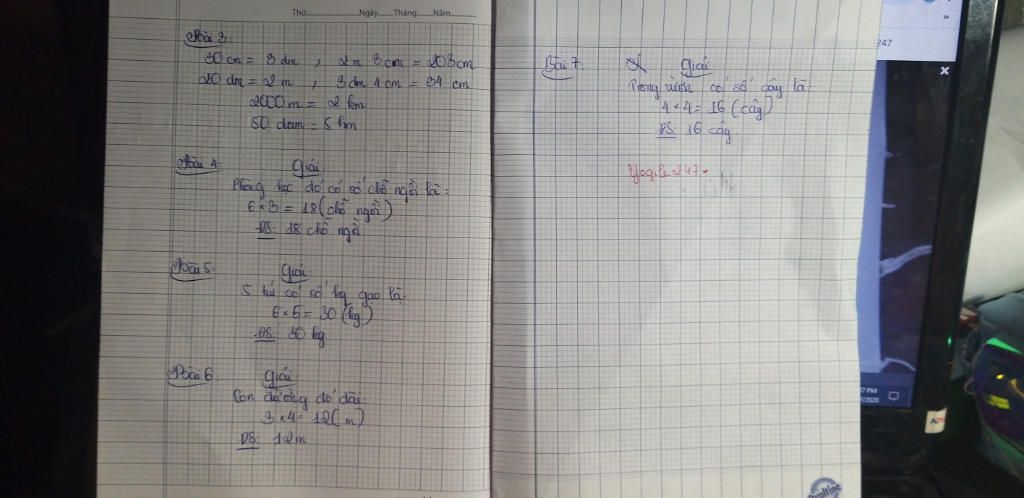 Thứ Ngày Tháng Năm
Bài 3:
30 cm = 3 dm , 2m 3 cm = 203 cm
20 dm = 2 m , 3 dm 4 cm = 34 cm
2000 m = 2 km
50 dam = 5 hm
Bài 4: Giải
Phòng học đó có số chỗ ngồi là:
6 × 3 = 18 (chỗ ngồi)
ĐS: 18 chỗ ngồi
Bài 5: Giải
5 túi có số kg gạo là:
6 × 5 = 30 (kg)
ĐS: 30 kg
Bài 6 Giải
Con đường đó dài:
3 × 4 = 12 (m)
ĐS: 12m
Bài 7: Giải
Trong vườn có số cây là:
4 × 4 = 16 (cây)
ĐS: 16 cây.
247